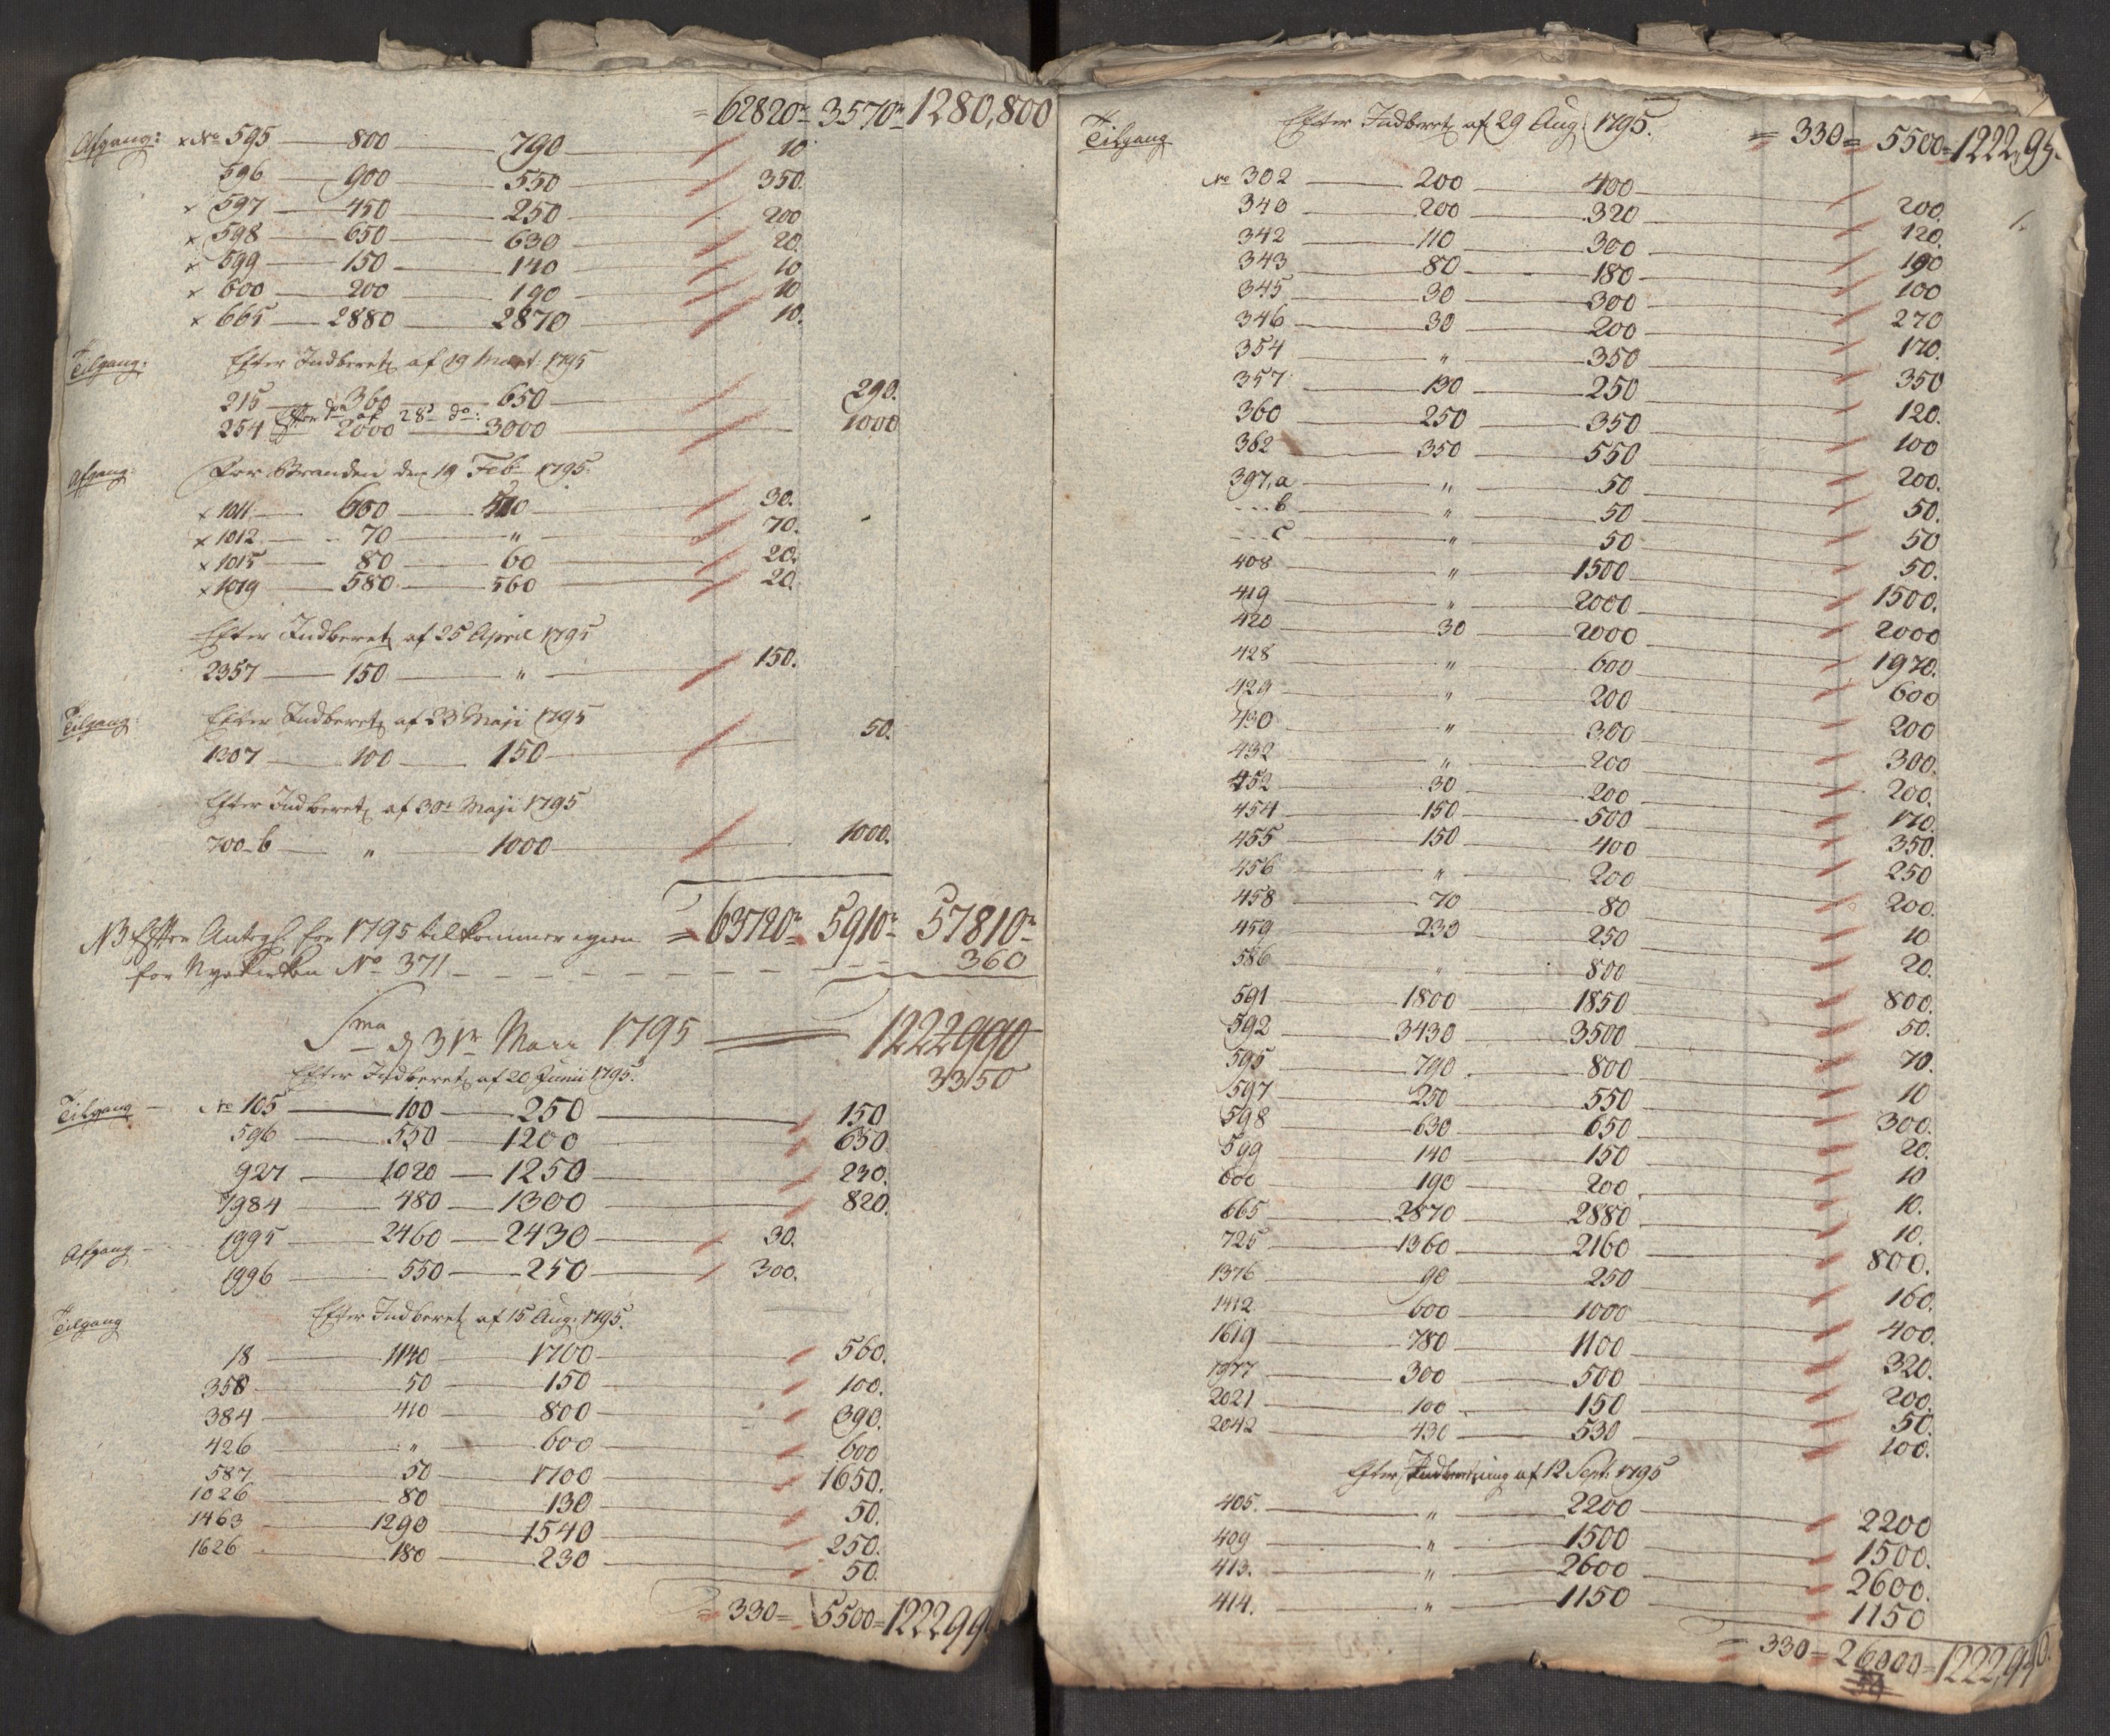 = 62820 = 3570 = 1280,800
Afgang: × No 595 — 800 — 790 — 10
596 — 900 — 550 — 350.
× 597 — 450 — 250 — 200
× 598 — 650 — 630 — 20.
× 599 — 150 — 140 — 10
× 600 — 200 — 190 — 10
× 665 — 2880 — 2870 — 10.
Tilgang: Efter Indberetn af 19 Mart. 1795
215 — 360 — 650 — 290.
Efter do af 28 do:
254 — 2000 — 3000 — 1000
Afgang: For Branden den 19 Feb. 1795.
× 1011 — 600 — — 30.
× 1012 — 70 — " — 70.
× 1015 — 80 — 60 — 20.
× 1019 — 580 — 560 — 20.
Efter Indberetn af 25 April 1795
2357 — 150 — " — 150.
Tilgang: Efter Indberetn af 23 Maji 1795
1307 — 100 — 150 — 50.
Efter Indberetn af 30 Maji 1795
700-b — " — 1000 — 1000.
= 63720 = 5910 = 57810
NB Efter for 1795 tilkommer igien
for Nyekirken No 371. — 360
Sma d 31 Maii 1795 — 1222990
Efter Indberetn af 20 Junii 1795. 3350
Tilgang — No 105 — 100 — 250 — 150
596 — 550 — 1200 — 650
927 — 1020 — 1250 — 230.
1984 — 480 — 1300 — 820.
Afgang — 1995 — 2460 — 2430 — 30.
1996 — 550 — 250 — 300.
Tilgang Efter Indberetn af 15 Aug. 1795.
18 — 1140 — 1700 — 560.
358 — 50 — 150 — 100.
384 — 410 — 800 — 390.
426 — " — 600 — 600
587 — 50 — 1700 — 1650.
1026 — 80 — 130 — 50.
1463 — 1290 — 1540 — 250.
1626 — 180 — 230 — 50.
= 330 = 5500 = 122299
Tilgang Efter Indberetn af 29 Aug. 1795. = 330 = 5500 = 1222,99
No 302 — 200 — 400 — 200.
340 — 200 — 320 — 120.
342 — 110 — 300 — 190
343 — 80 — 180 — 100
345 — 30 — 300 — 270
346 — 30 — 200 — 170.
354 — " — 350 — 350
357 — 130 — 250 — 120.
360 — 250 — 350 — 100
362 — 350 — 550 — 200.
397,a — " — 50 — 50.
- - - b — " — 50 — 50
- - - c — " — 50 — 50.
408 — " — 1500 — 1500.
419 — " — 2000 — 2000
420 — 30 — 2000 — 1970.
428 — " — 600 — 600
429 — " — 200 — 200
430 — " — 300 — 300.
432 — " — 200 — 200.
452 — 30 — 200 — 170.
454 — 150 — 500 — 350.
455 — 150 — 400 — 250
456 — " — 200 — 200.
458 — 70 — 80 — 10
459 — 230 — 250 — 20.
586 — " — 800 — 800.
591 — 1800 — 1850 — 50.
592 — 3430 — 3500 — 70.
595 — 790 — 800 — 10
597 — 250 — 550 — 300.
598 — 630 — 650 — 20.
599 — 140 — 150 — 10
600 — 190 — 200 — 10.
665 — 2870 — 2880 — 10.
725 — 1360 — 2160 — 800.
1376 — 90 — 250 — 160.
1412 — 600 — 1000 — 400.
1619 — 780 — 1100 — 320.
1977 — 300 — 500 — 200.
2021 — 100 — 150 — 50.
2042 — 430 — 530 — 100.
Efter Indberetning af 12 Sept. 1795
405. — " — 2200 — 2200
409 — " — 1500 — 1500.
413. — " — 2600 — 2600.
414. — " — 1150 — 1150
= 330 = 26000 = 1222,990.